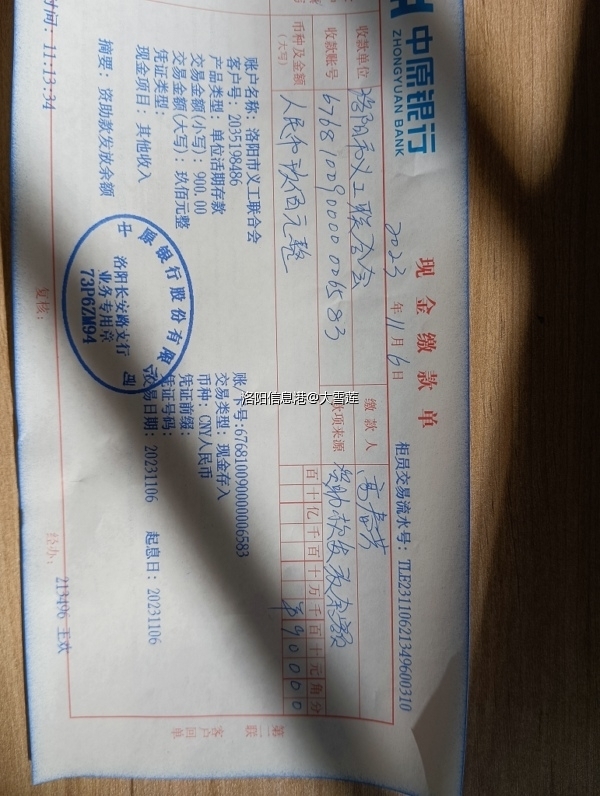 中原银行
ZHONGYUAN BANK
现金缴款单
2023年11月6日
柜员交易流水号：TLE23110621349600310
收款单位 洛阳市义工联合会
缴款人 高春芳
收款账号 676810090000006583
款项来源 资助款发放余额
币种及金额
(大写)
人民币玖佰元整
百十亿千百十万千百十元角分
¥90000
账户名称：洛阳市义工联合会
账/卡号:676810090000006583
客户号：2035198486
交易类型：现金存入
产品类型：单位活期存款
币种：CNY人民币
交易金额(小写)：900.00
凭证前缀：
交易金额(大写)：玖佰元整
凭证号码：
凭证类型：
交易日期：20231106
起息日：20231106
现金项目：其他收入
摘要：资助款发放余额
中原银行股份有限公司
洛阳长安路支行
业务专用章
73P6ZM94
时间：11:13:34
复核：
经办：213496 王欢
第二联
客户回单
洛阳信息港@大雪莲